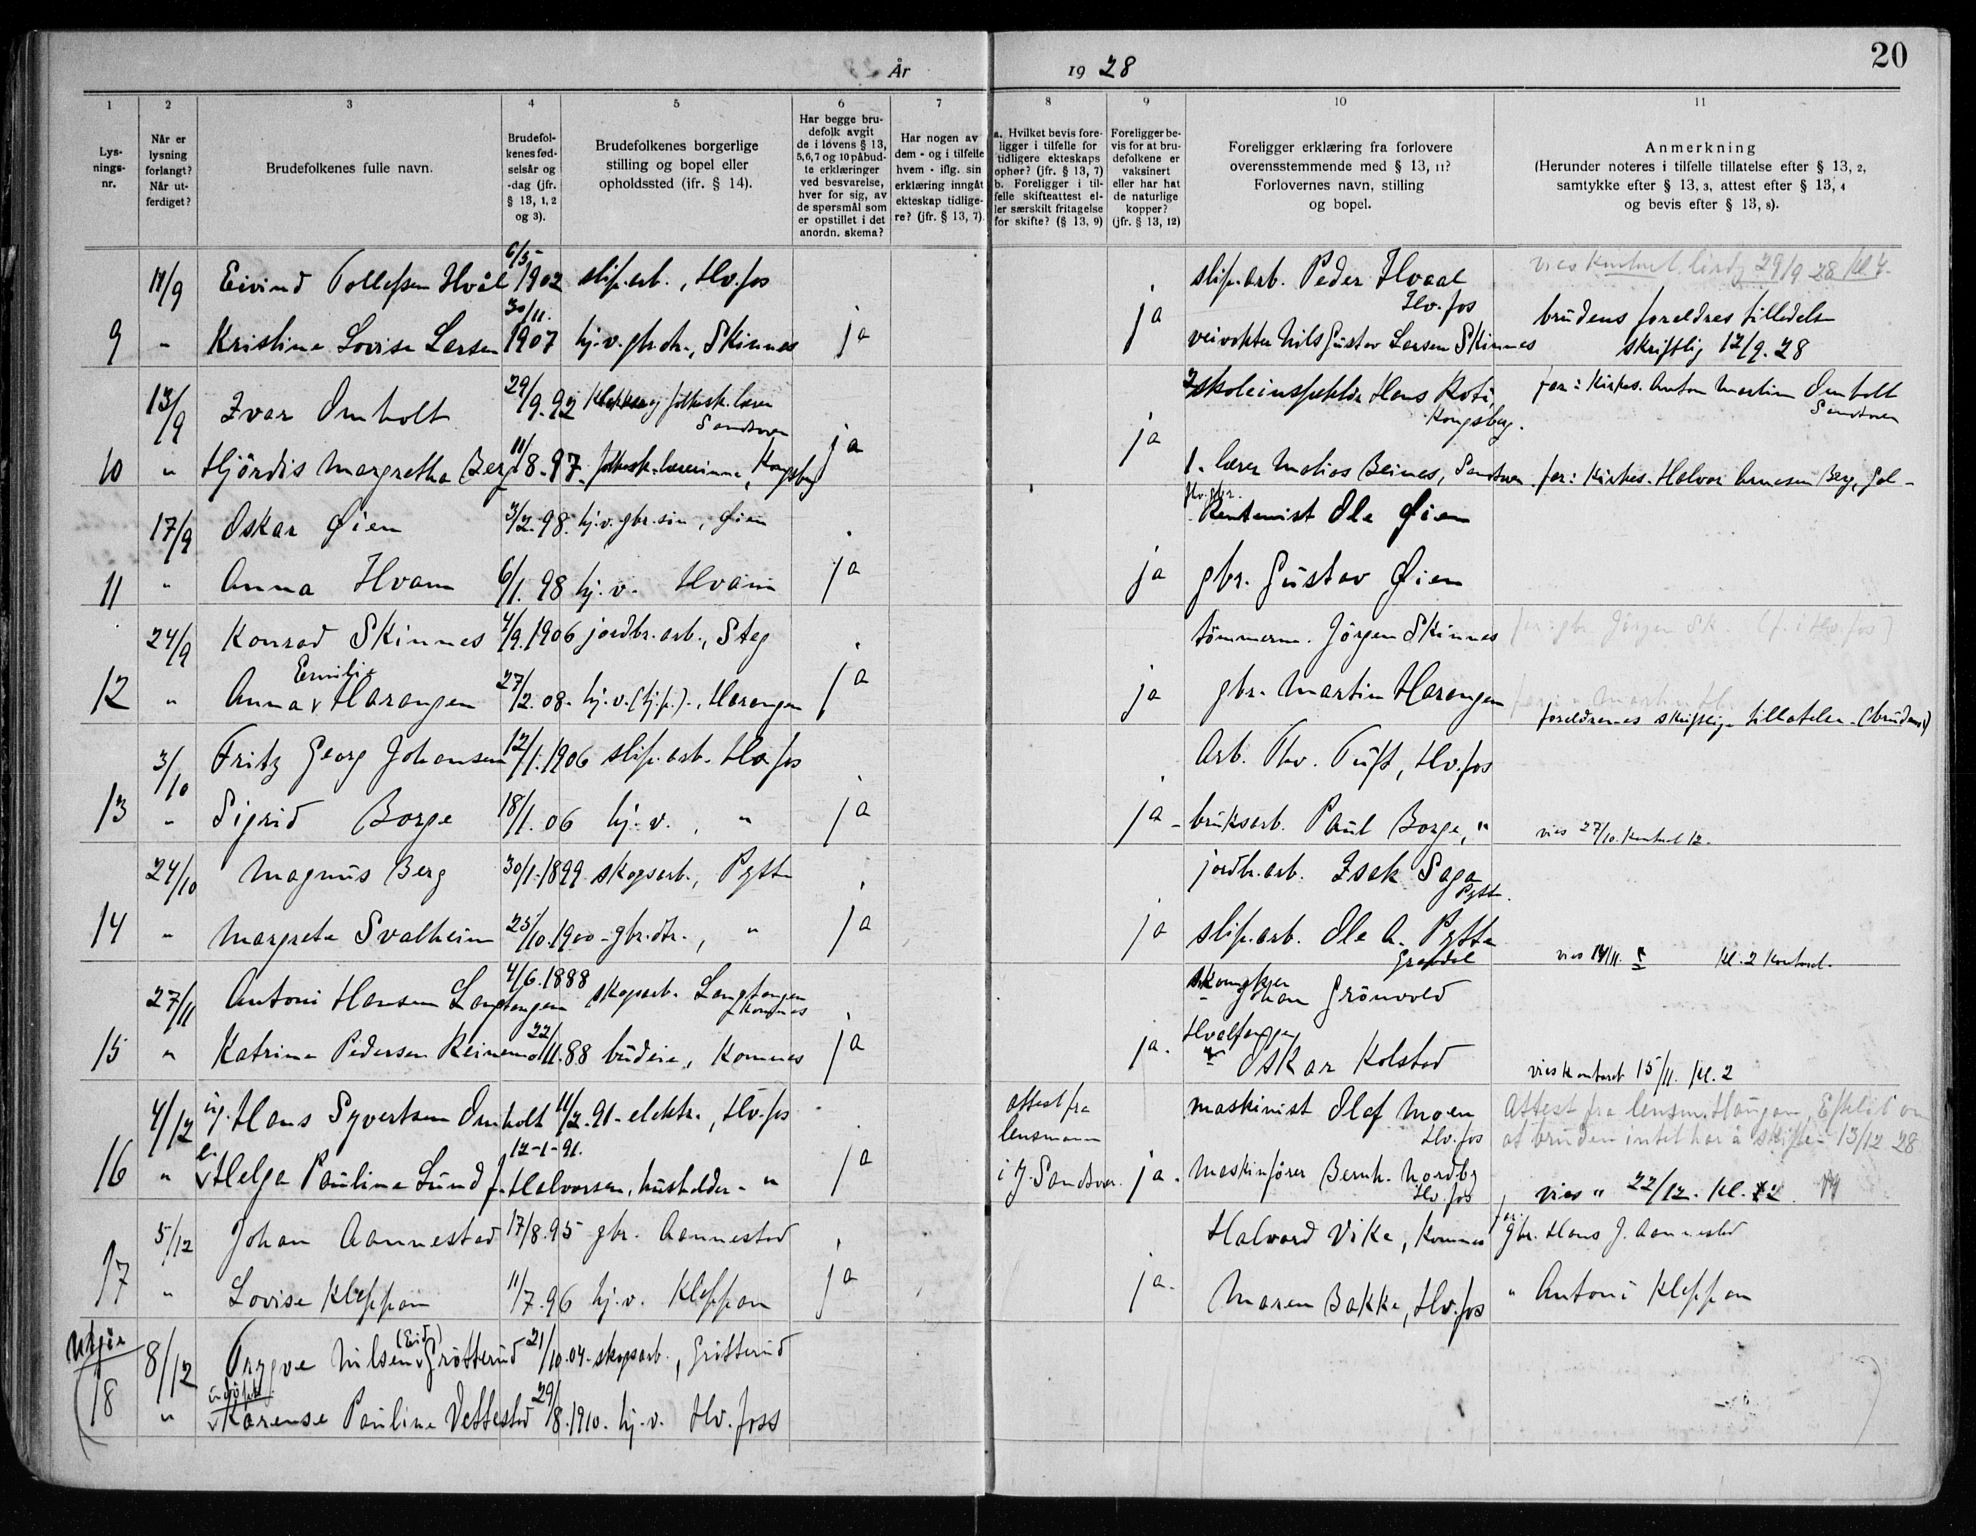 År 1928
20
1 2 3 4 5 6 7 8 9 10 11
Lysnings-nr.
Når er lysning forlangt? Når utferdiget?
Brudefolkenes fulle navn.
Brudefolkenes fødselsår og -dag (jfr. § 13, 1, 2 og 3).
Brudefolkenes borgerlige stilling og bopel eller opholdssted (ifr. § 14).
Har begge brudefolk avgit de i lovens § 13, 5, 6, 7 og 10 påbudte erklæringer ved besvarelse, hver for sig, av de spørsmål som er opstillet i det anordn. skema?
Har nogen av dem - og i tilfelle hvem - iflg. sin erklæring inngåt ekteskap tidligere? (jfr. § 13, 7)
a. Hvilket bevis foreligger i tilfelle for tidligere ekteskaps ophør? (jfr. § 13, 7) b. Foreligger i tilfelle skifteattest eller særskilt fritagelse for skifte? (§ 13, 9)
Foreligger bevis for at brudefolkene er vaksinert eller har hat de naturlige kopper? (jfr. § 13, 12)
Foreligger erklæring fra forlovere overensstemmende med § 13, 11? Forlovernes navn, stilling og bopel.
Anmerkning (Herunder noteres i tilfelle tillatelse efter § 13, 2, samtykke efter § 13, 3, attest efter § 13, 4 og bevis efter § 13, 8).
11/9 Eivind Tollefsen Hvål 6/5 1902 slip.arb., Hv.fos slip.arb. Peder Hvaal Hv.fos 29/9 28 kl 4.
9 " Kristine Lovise Larsen 30/11. 1907 hj.v. gbr.dtr., Skinnes ja ja veivokter Nils Gustav Larsen Skinnes brudens foreldres tilladelse skriftlig 12/9.28
13/9 Ivar Omholt 29/9.92 folkesk.lærer Sandsver 2 skoleinspektør Hans Kongsberg. far: Kirkes. Anton Martin Omholt Sandsver
10 " Hjördis Margrethe Berg 11/8.97. folkesk.lærerinne, Kongsberg ja ja 1. lærer Matias Beines, Sandsver. far: Kirkes. Halvor Arnesen Berg, Gol-
17/9 Oskar Øien 3/2.98. hj.v. gbr.sön, Øien Rentenist Ole Øien
11 " Anna Hvam 6/1.98 hj.v. Hvam ja ja gbr. Gustav Øien
24/9 Konrad Skinnes 4/9.1906 jordbr.arb., Steg tömmerm. Jörgen Skinnes far: gbr. Jörgen Sk.
12 " Anna Emilie Harangen 27/2.08. hj.v. (hj.p.)., Harangen ja ja gbr. Martin Harangen foreldrenes skriftlige tillatelse (brudens)
3/10 Fritz Georg Johansen 12/1.1906 slip.arb. Hv.fos Arb. Thv. Tuft, Hv.fos
13 " Sigrid Borge 18/1.06 hj.v., " ja ja - bruksarb. Paul Borge, " vies 27/10. kontoret 12.
24/10 Magnus Berg 30/1.1899 skogsarb., Pytte jordbr.arb. Isak Saga Pytte.
14 " Margrete Svalheim 25/10.1900 - gbr.dtr., " ja ja slip.arb. Ole A. Pytte vies 14/11. kl. 2 kontoret.
27/11 Antoni Hansen Langtangen 4/6.1888 skogsarb. Langtangen Komnes Johan Grönvold
15 " Katrine Pedersen Reinemo 22/11.88 budeie, Komnes ja ja. Oskar Kolstad vies kontoret 15/11. kl. 2
4/12 ug. Hans Syvertsen Omholt 11/2.91 - elektr., Hv.fos attest fra lensmann maskinist Olaf Moen Hv.fos Attest fra lensm. Haugan, Efteløt om at bruden intet har å skifte - 13/12 28
16 " e. Helga Pauline Lund f. Halvorsen, 12-1-91. husholder - " ja i Y. Sandsver. ja. Maskinfører Bernh. Nordby Hv.fos vies " 22/12. kl. 2
5/12 Johan Aannestad 17/8.95 gbr. Aannestad Halvord Vike, Komnes far: Gbr. Hans J. Aannestad
17 " Lovise Kleppan 11/7.96 hj.v. Kleppan ja ja. Maren Bakke, Hv.fos " Antoni Kleppan
8/12 Trygve Nilsen (Eid) Grötterud 21/10.04. skogsarb., Grötterud
(18 " Karense Pauline Vettestad 29/8.1910. hj.v. Hv.foss )